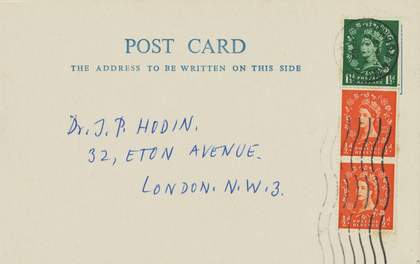 POST CARD
THE ADDRESS TO BE WRITTEN ON THIS SIDE
Dr. J. P. HODIN.
32, ETON AVENUE.
LONDON. N.W.3.
1½d
½d
½d